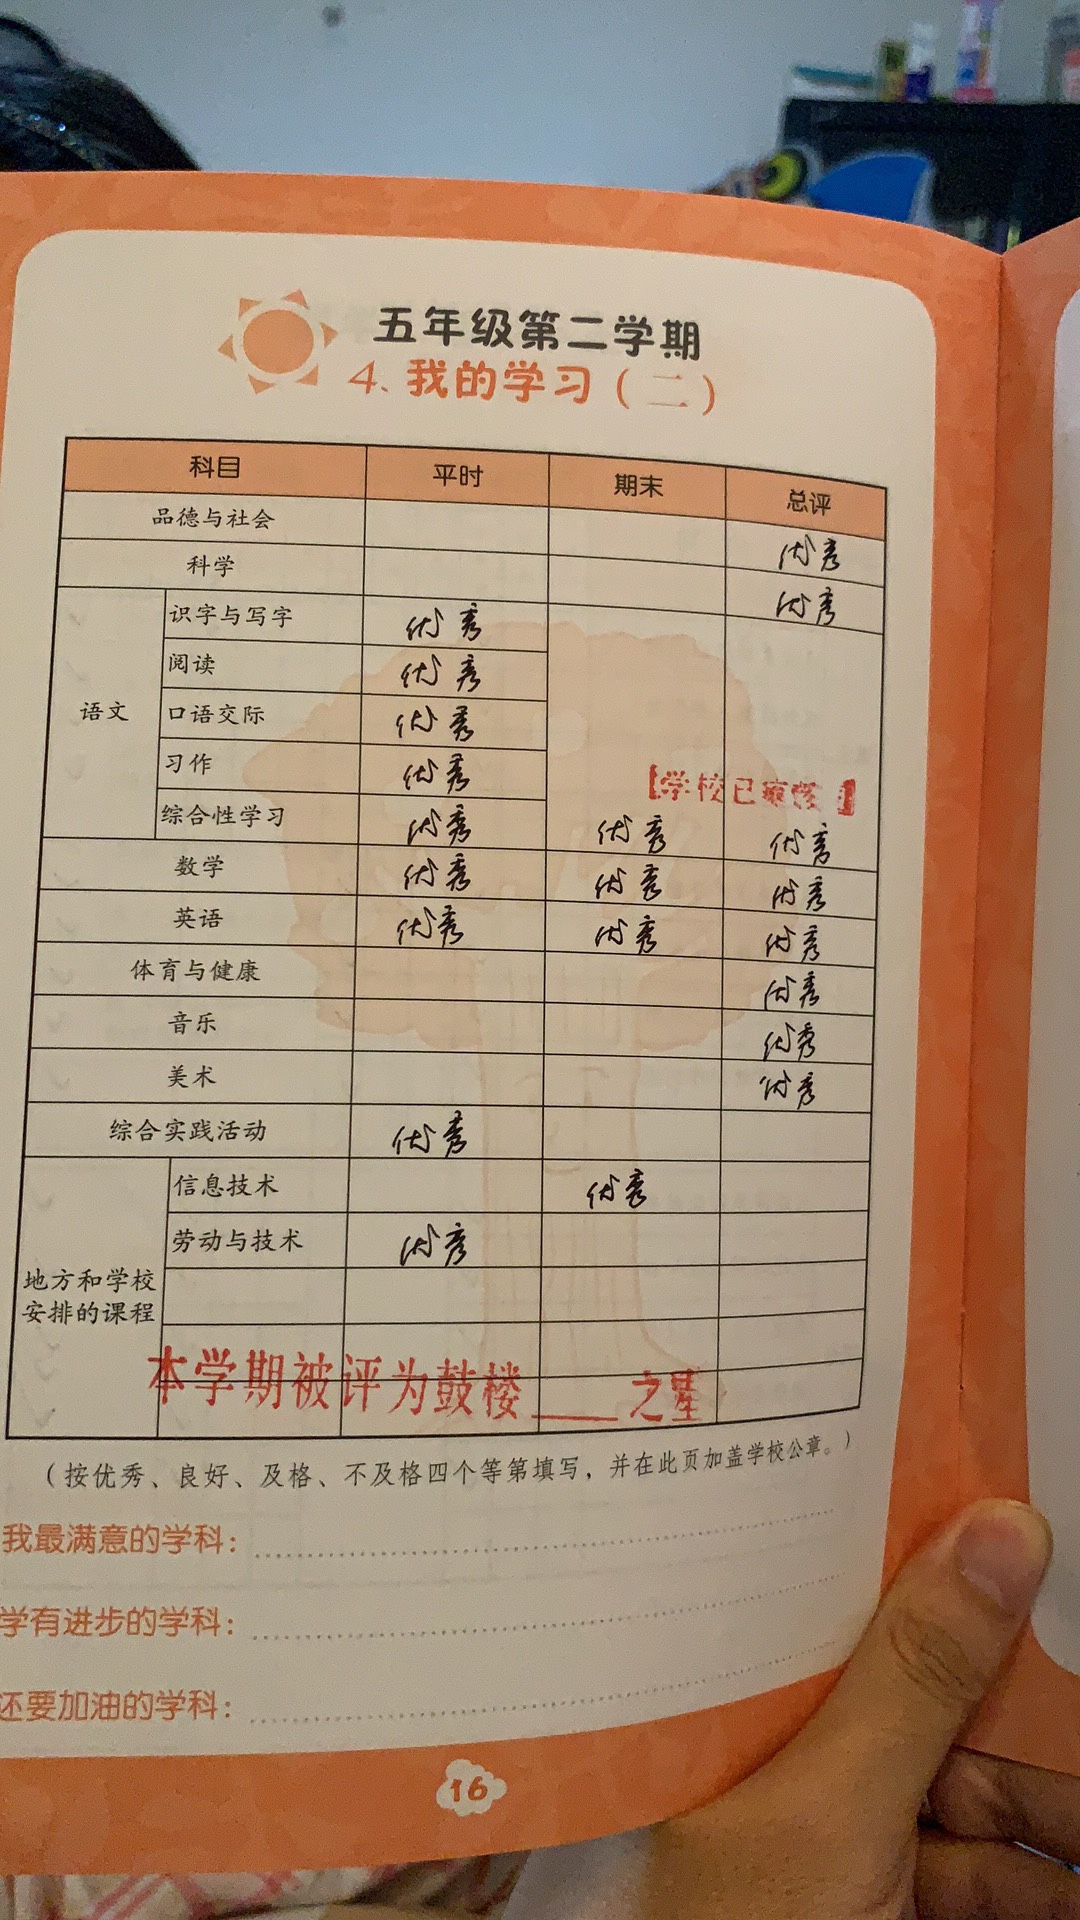 五年级第二学期
4. 我的学习（二）
科目 平时 期末 总评
品德与社会 优秀
科学 优秀
语文
识字与写字 优秀
阅读 优秀
口语交际 优秀
习作 优秀
【学校已审核】
综合性学习 优秀 优秀 优秀
数学 优秀 优秀 优秀
英语 优秀 优秀 优秀
体育与健康 优秀
音乐 优秀
美术 优秀
综合实践活动 优秀
地方和学校
安排的课程
信息技术 优秀
劳动与技术 优秀
本学期被评为鼓楼____之星
（按优秀、良好、及格、不及格四个等第填写，并在此页加盖学校公章。）
我最满意的学科：
学有进步的学科：
还要加油的学科：
16